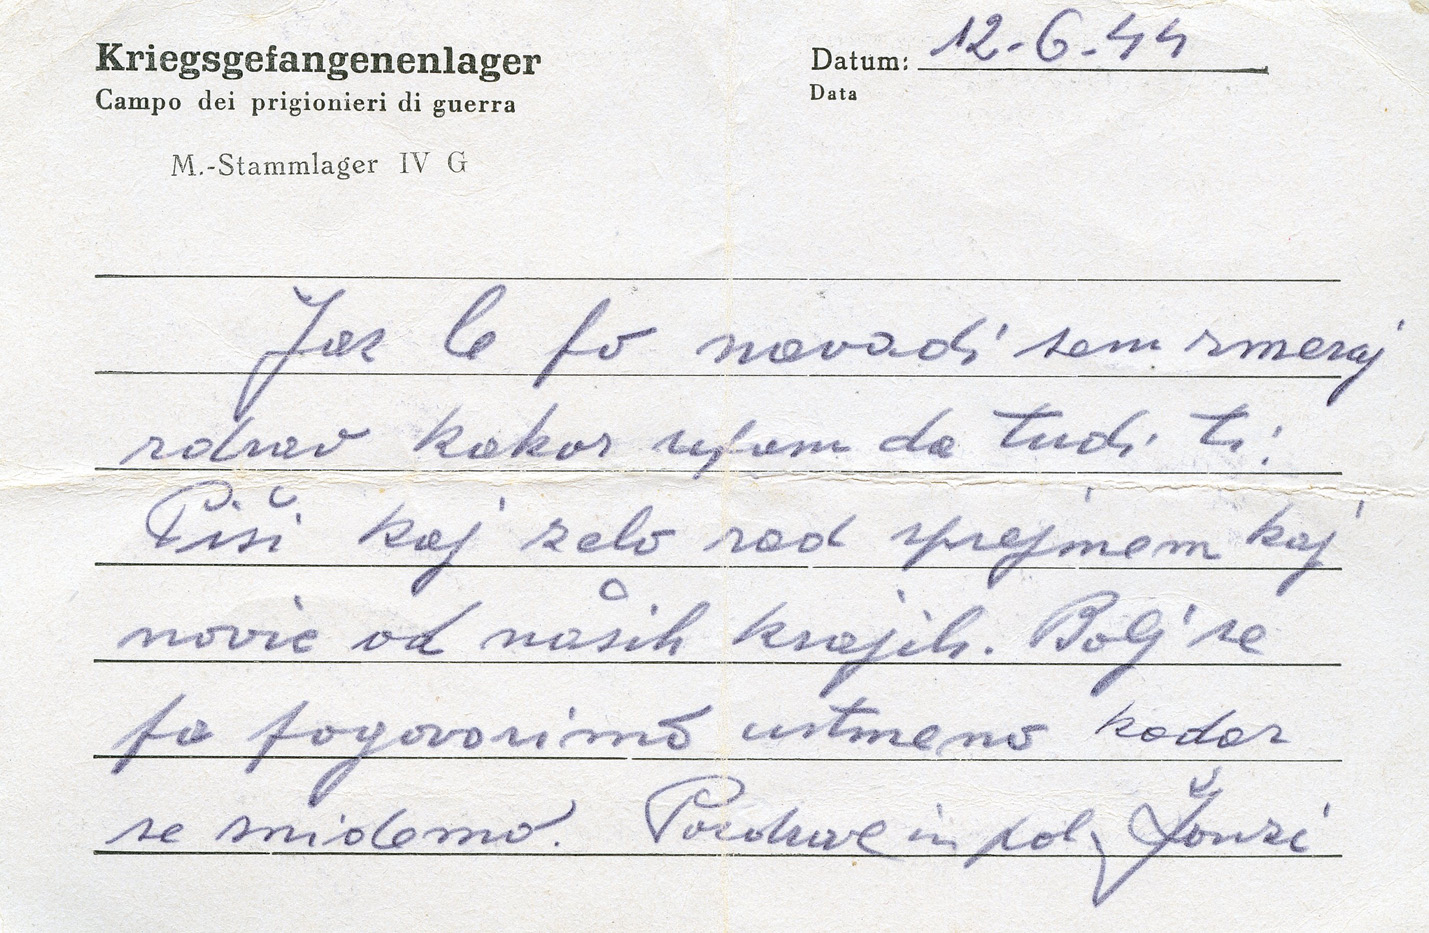 Kriegsgefangenenlager
Campo dei prigionieri di guerra
M.-Stammlager IV G
Datum: 12-6-44
Data
Jaz le po navadi sem zmeraj
zdrav kakor upam da tudi ti!
Piši kaj zelo rad sprejmem kaj
novic od naših krajih. Bolj se
pa pogovorimo ustmeno kadar
se snidemo. Pozdrave in